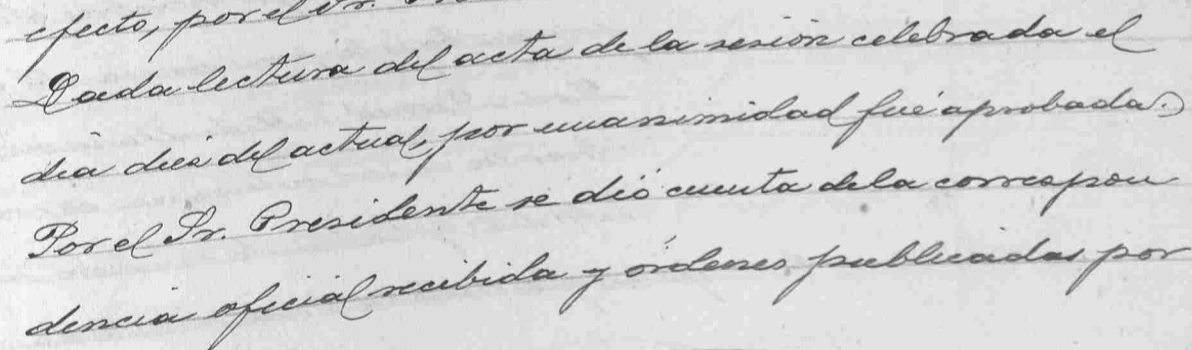 efecto, por el Sr.
Dada lectura del acta de la sesión celebrada el
dia dies del actual, por unanimidad fué aprobada.
Por el Sr. Presidente se dió cuenta de la correspon
dencia oficial recibida y órdenes publicadas por